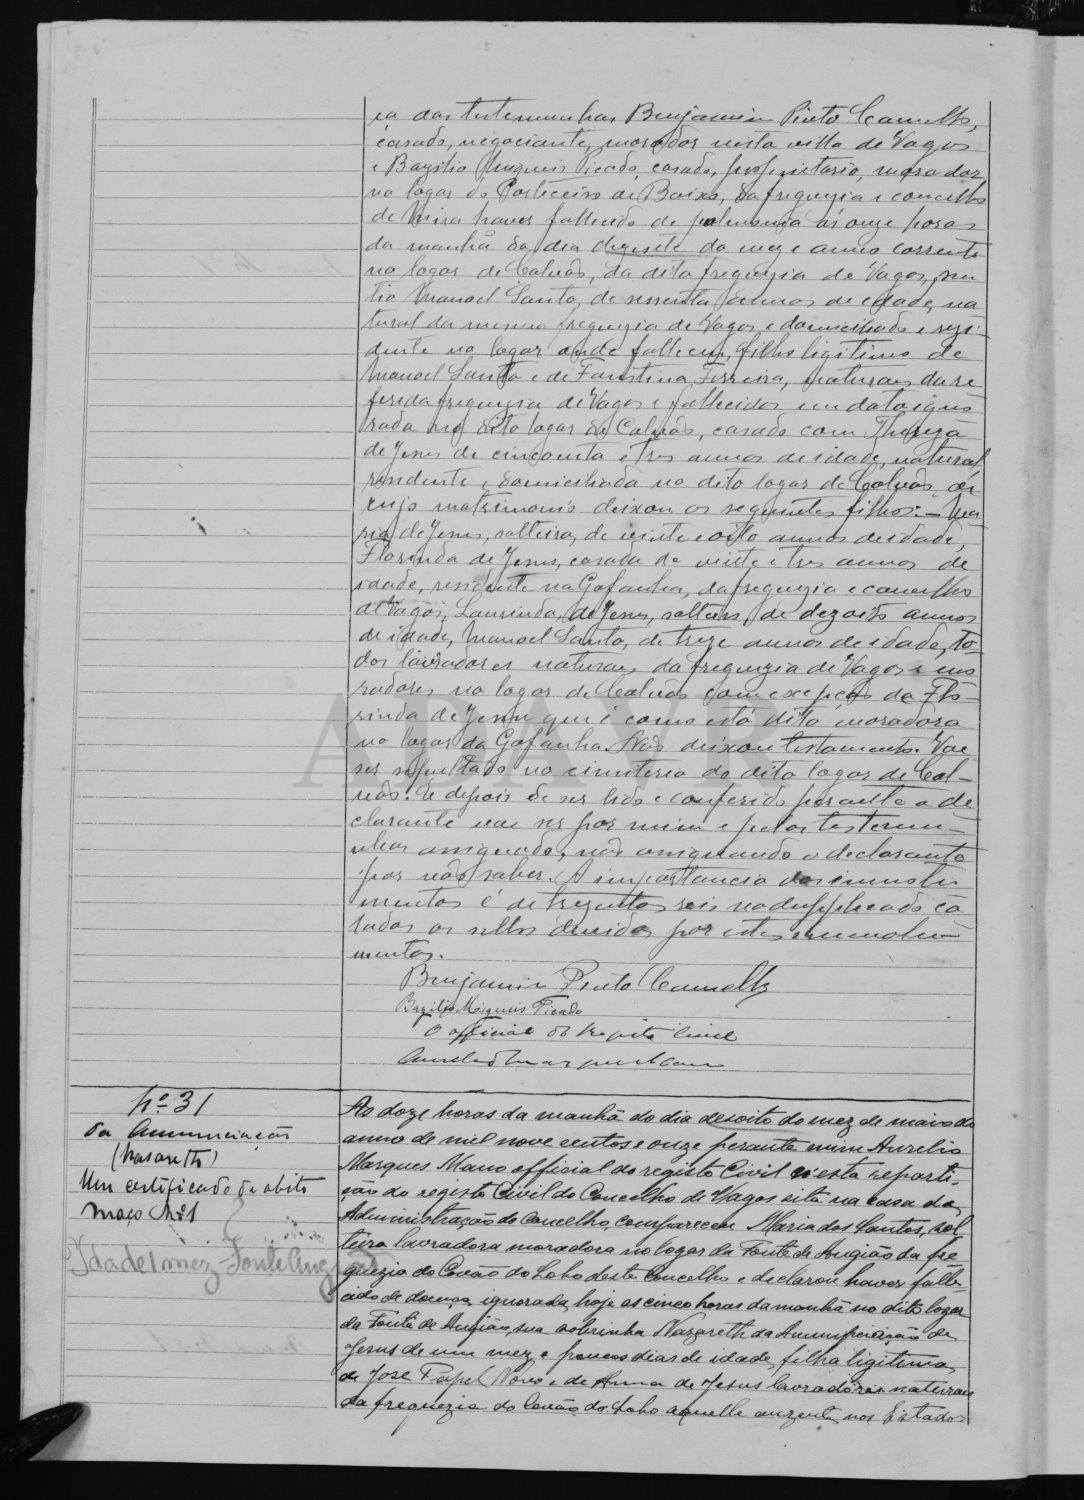 ça das testemunhas Benjamim Pinto Camello,
casado, negociante, morador nesta villa de Vagos
e Bazilio Migueis Picado, casado, proprietario, morador
no logar do Corticeiro de Baixo, da freguezia e concelho
de Mira haver fallecido de pneumonia ás onze horas
da manhã do dia dezesete do mez e anno corrente
no logar de Calvão, da dita freguezia de Vagos, seu
tio Manoel Santo, de sessenta annos de edade, na
tural da mesma freguezia de Vagos e domiciliado e rezi-
dente no logar onde falleceu, filho ligitimo de
Manoel Santo e de Faustina Ferreira, naturaes da re
ferida freguezia de Vagos e fallecidos em data igno
rada no dito logar de Calvão, casado com Thereza
de Jesus de cincoenta e tres annos de idade, natural
residente e domiciliada no dito logar de Calvão, de
cujo matrimonio deixou os seguintes filhos: — Ma
ria de Jesus, solteira, de vinte e oito annos de idade,
Florinda de Jesus, casada de vinte e tres annos de
idade, residente na Gafanha, da freguezia e concelho
de Vagos, Laurinda de Jesus, solteira, de dezoito annos
de idade, Manoel Santo, de treze annos de idade, to-
dos lavradores naturaes da freguezia de Vagos e mo
radores no logar de Calvão com excepção da Flo-
rinda de Jesus que é como está dito moradora
no logar da Gafanha. Não deixou testamento. Vae
ser sepultado no cimiterio do dito logar de Cal-
vão. E depois de ser lido e conferido perante o de
clarante vae ser por mim e pelas testemu-
nhas assignado, não assignando o declarante
por não saber. A importancia dos emmolu
mentos é de trezentos reis no duplicado co
lados os sellos devidos por estes emmolu
mentos.
Benjamin Pinto Camello
Bazilio Migueis Picado
O official do registo civil
Aurelio Marques Mano
Nº 31
da Annunciação
(Nasareth)
Um certificado de obito
Maço Nº 1
Idade 1 mez - Fonte Angião
As doze horas da manhã do dia desoito do mez de maio do
anno de mil nove centos e onze perante mim Aurelio
Marques Mano official do registo Civil n'esta reparti-
ção do registo Civil do Concelho de Vagos sita na casa da
Administração do Concelho, compareceu Maria dos Santos, sol
teira lavradora moradora no logar da Fonte de Angião da fre
guezia do Covão do Lobo deste Concelho e declarou haver falle-
cido de doença ignorada, hoje as cinco horas da manhã no dito logar
da Fonte de Angião, sua sobrinha Nazareth da Annunciação de
Jesus de um mez e poucos dias de idade, filha ligitima,
de José Papel Novo e de Anna de Jesus lavradores naturaes
da freguezia do Covão do Lobo aquelle auzente nos Estados
ADAVR